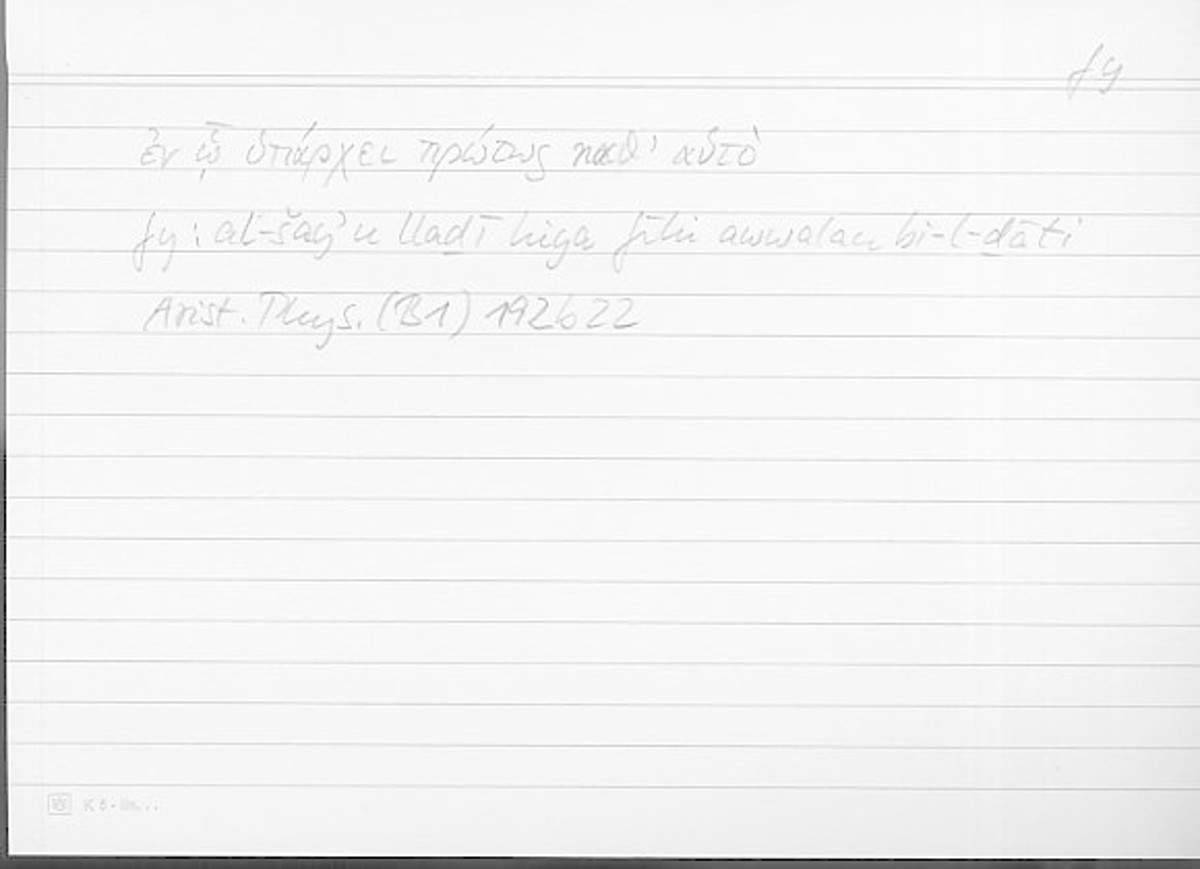 fy
ἐν ᾧ ὑπάρχει πρώτως καθ' αὑτὸ
fy: al-šayʾu lladī hiya fīhi awwalan bi-l-ḏāti
Arist. Phys. (B1) 192b22